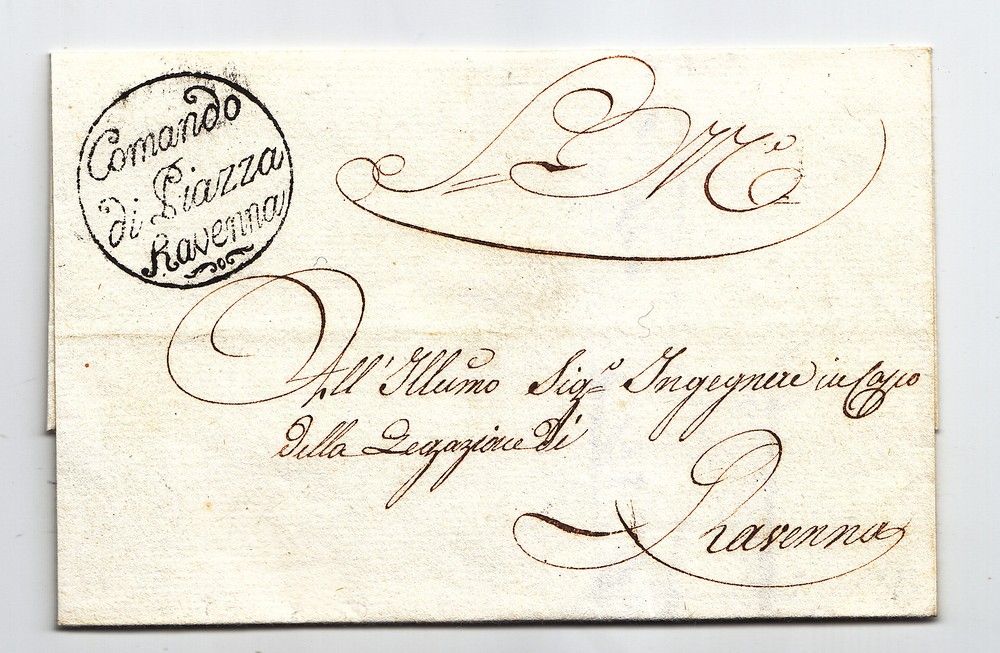 Comando
di Piazza
Ravenna
All'Illumo Sigr. Ingegnere in Capo
della Legazione di
Ravenna